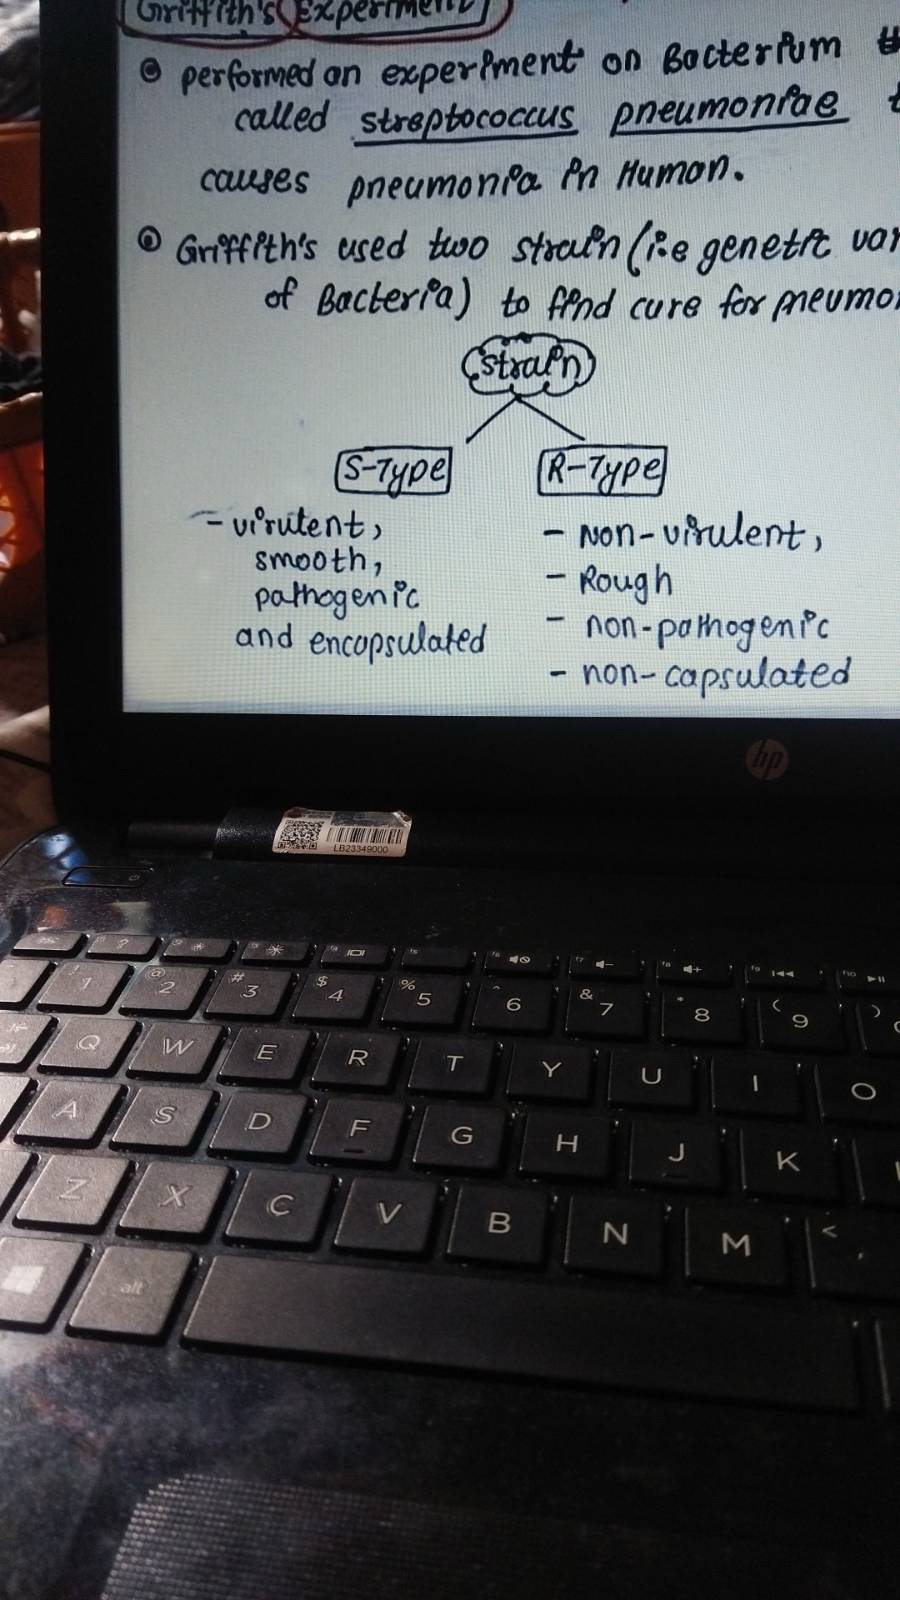 Griffith's Experiment
performed an experiment on Bacterium
called streptococcus pneumoniae
causes pneumonia in Human.
Griffith's used two strain (i.e genetic
of Bacteria) to find cure for
strain
S-Type R-Type
- virutent,
smooth,
pathogenic
and encapsulated
- Non-virulent,
- Rough
- non-pathogenic
- non-capsulated
hp
LB23349000
! 1 @ 2 # 3 $ 4 % 5 ^ 6 & 7 * 8 ( 9 )
Q W E R T Y U I O
A S D F G H J K
Z X C V B N M < ,
alt